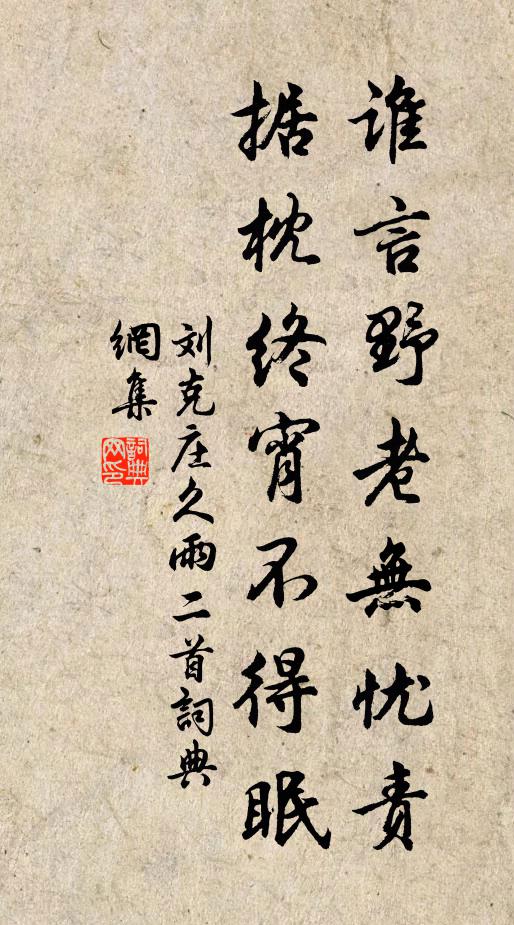 谁言野老無忧责
据枕终宵不得眠
刘克庄久雨二首詞典
網集
詞典网印